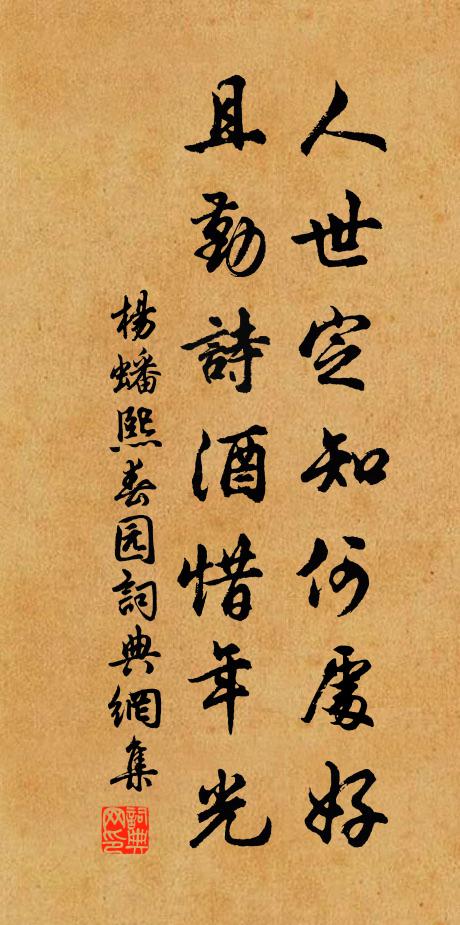 人世定知何處好
且勤詩酒惜年光
楊蟠熙春园詞典網集
詞典网印